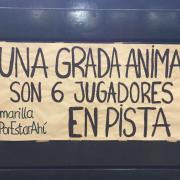 UNA GRADA ANIMA
SON 6 JUGADORES
marilla
PorEstarAhí
EN PISTA